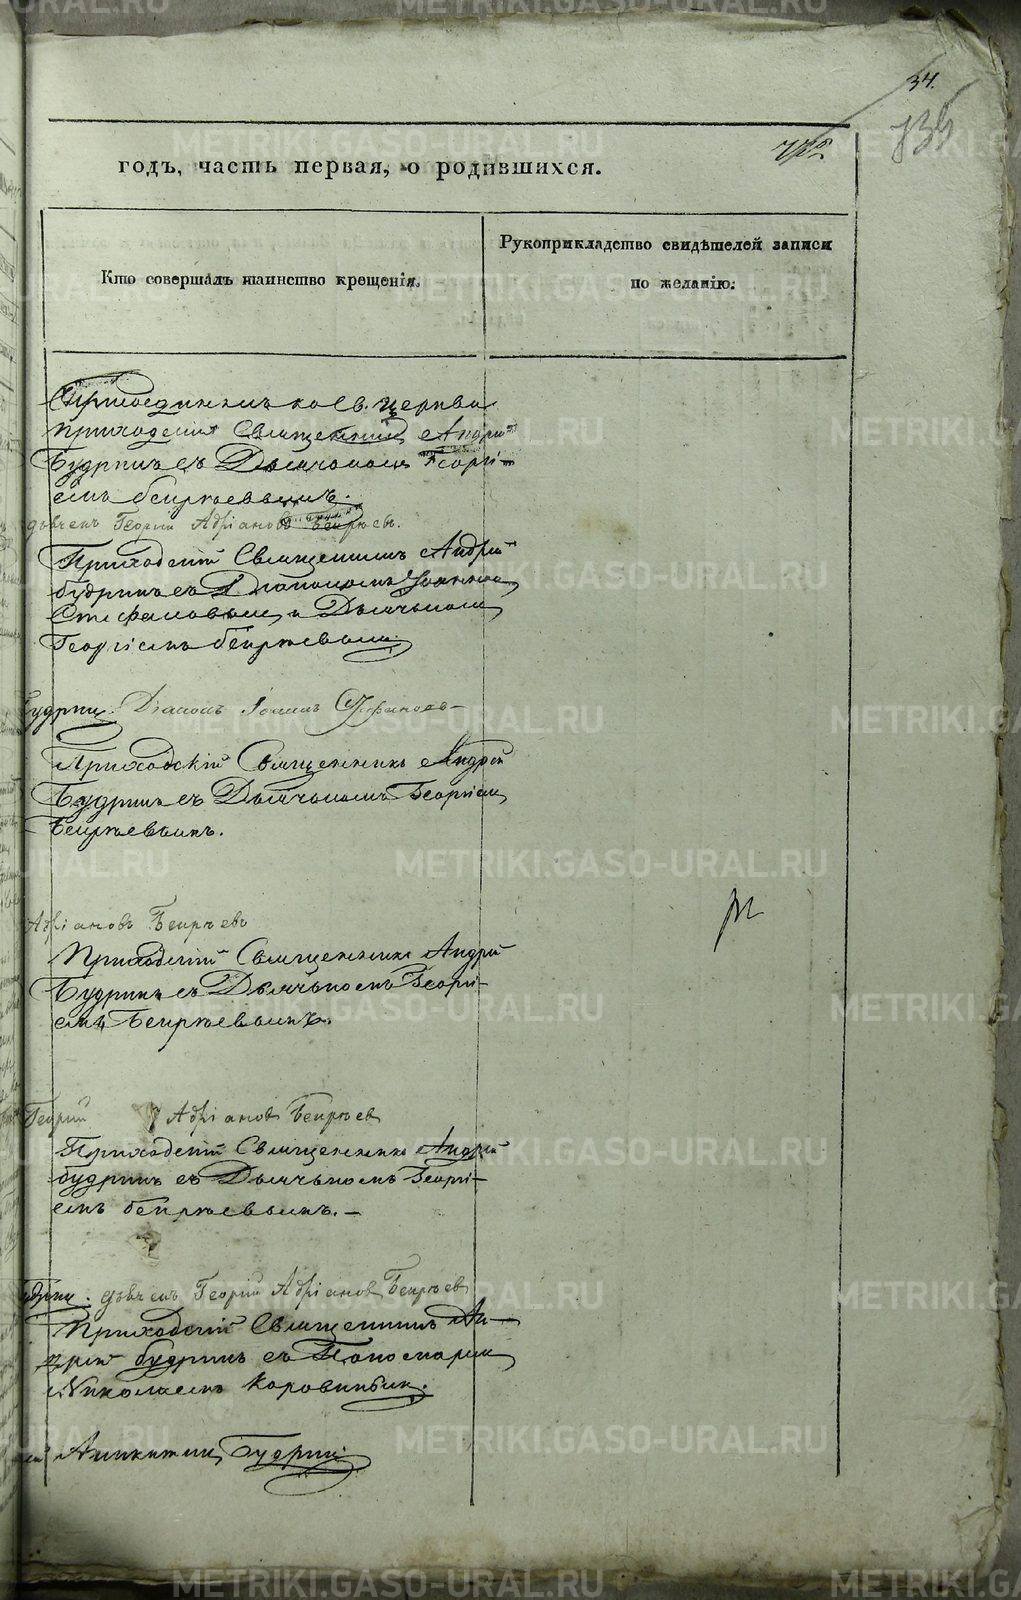 34.
735
годъ, часть первая, о родившихся.
Кто совершалъ таинство крещенія.
Рукоприкладство свидѣтелей записи
по желанію.
къ Св. церкви
приходскій Священникъ Андрей
Будринъ съ Дьячкомъ Георгі-
емъ Беирѣевымъ.
дьячекъ Георгій Адріановъ Беирѣевъ.
Приходскій Священникъ Андрей
Будринъ съ Діакономъ Іоанномъ
Стефановымъ и Дьячкомъ
Георгіемъ Беирѣевымъ.
Будринъ. Діаконъ Іоаннъ Стефановъ
Приходскій Священникъ Андрей
Будринъ съ Дьячкомъ Георгіемъ
Беирѣевымъ.
Адріановъ Беирѣевъ
Приходскій Священникъ Андрей
Будринъ съ Дьячкомъ Георгі-
емъ Беирѣевымъ.
Георгій Адріановъ Беирѣев
Приходскій Священникъ Андрей
Будринъ съ Дьячкомъ Георгі-
емъ Беирѣевымъ. —
дьячекъ Георгій Адріанов Беирѣев
Приходскій Священникъ Ан-
дрей Будринъ съ Пономаремъ
Николаемъ Коровинымъ.
Аникитин Будрин
METRIKI.GASO-URAL.RU